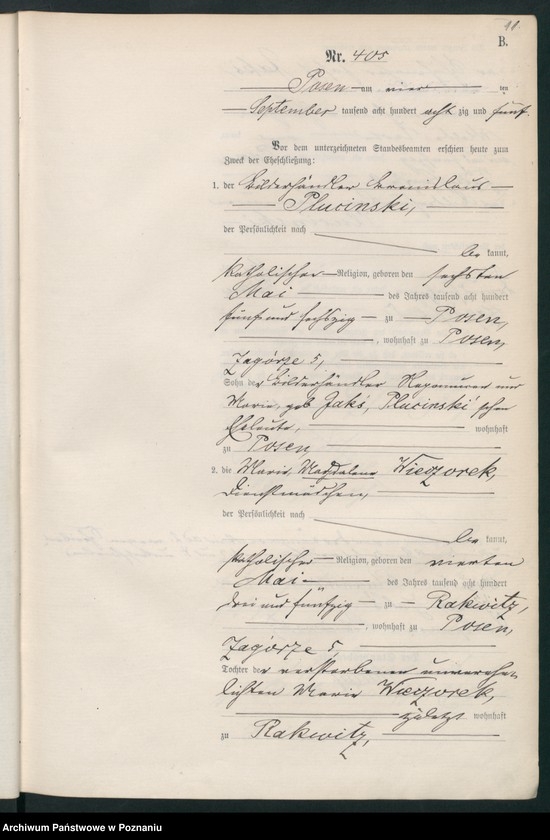 B.
Nr. 405
Posen am vier ten
September tausend acht hundert acht zig und fünf.
Vor dem unterzeichneten Standesbeamten erschien heute zum
Zweck der Eheschließung:
1. der Bilderhändler Bronislaus
Plucinski,
der Persönlichkeit nach
be kannt,
katholischer Religion, geboren den sechsten
Mai des Jahres tausend acht hundert
fünf und sechszig zu Posen,
, wohnhaft zu Posen,
Zagórze 5,
Sohn der Bilderhändler und
Marie, geb. Jakś, Plucinski'schen
Eheleute, wohnhaft
zu Posen,
2. die Marie Magdalena Wieczorek,
Dienstmädchen,
der Persönlichkeit nach
be kannt,
katholischer Religion, geboren den vierten
Mai des Jahres tausend acht hundert
drei und fünfzig zu Rakwitz,
, wohnhaft zu Posen,
Zagórze 5,
Tochter der verstorbenen unverehe-
lichten Marie Wieczorek,
zuletzt wohnhaft
zu Rakwitz,
Archiwum Państwowe w Poznaniu